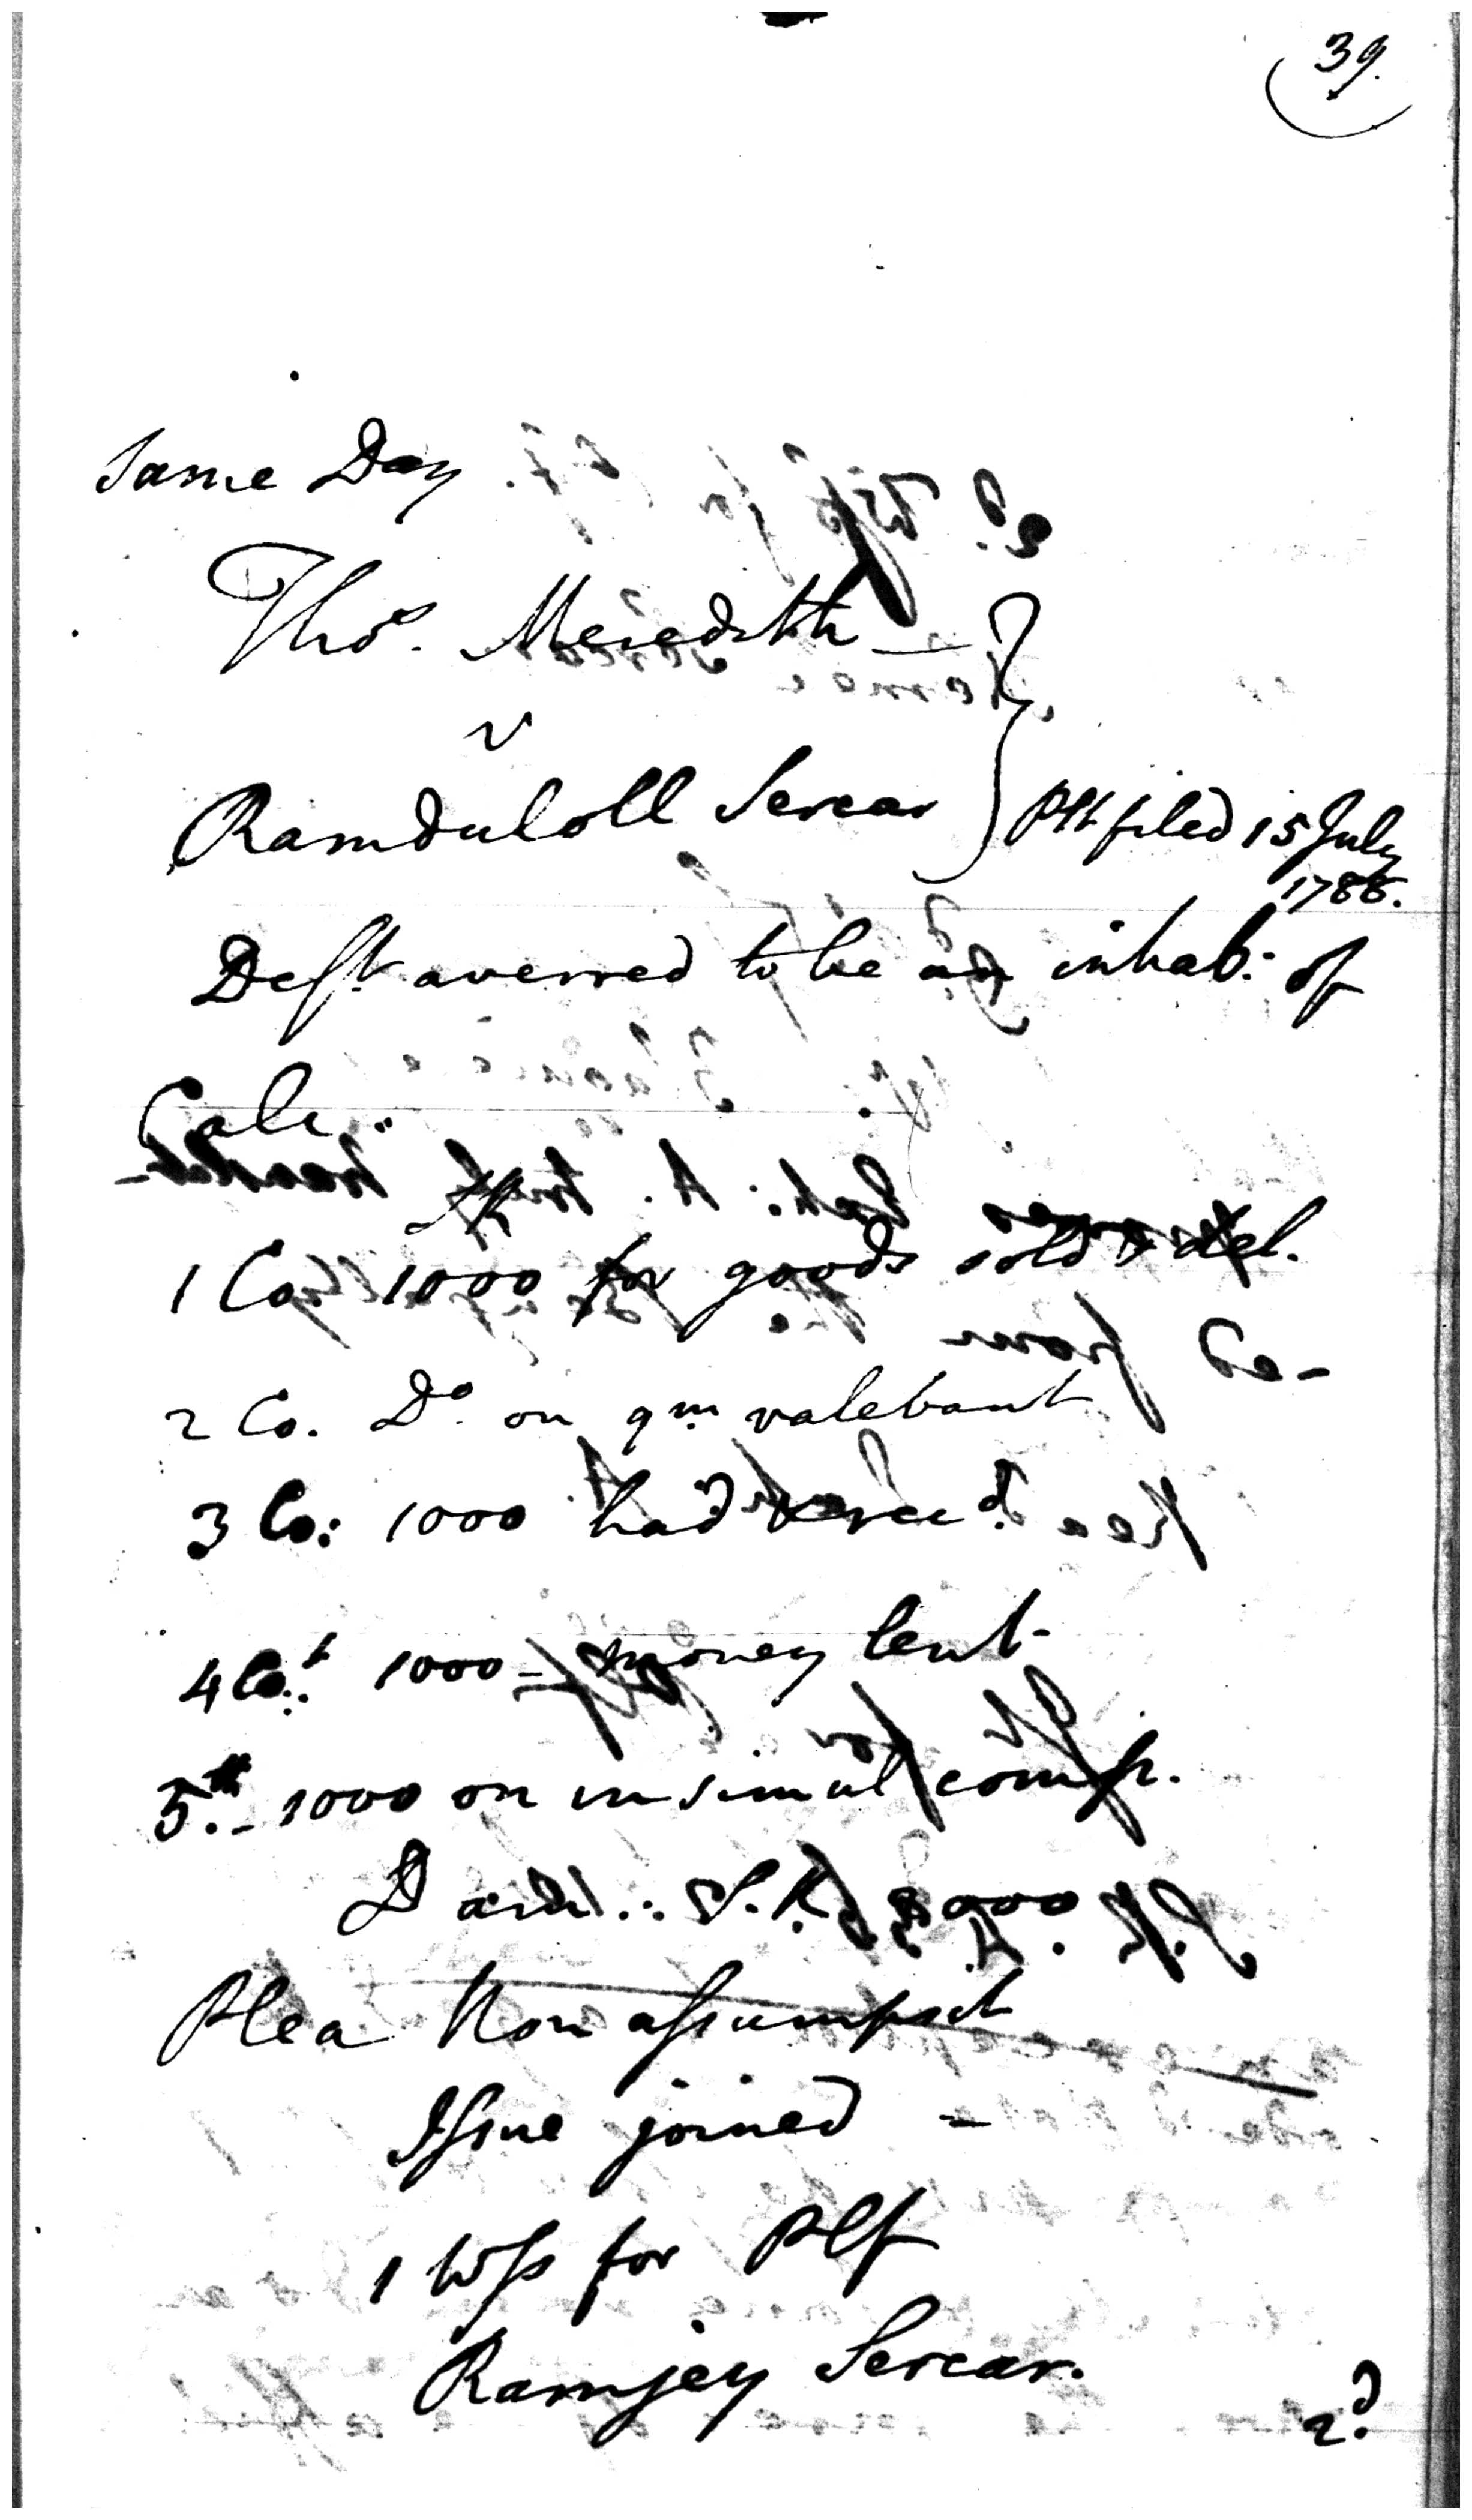 39.
Same Day
Thos. Meredith
v
Ramduloll Sercar
Plt filed 15 July
1788.
Deft. averred to be an inhab: of
Calc:
SR
1 Co. 1000 for goods sold & del.
2 Co. Do. on qm valebant
3 Co: 1000 had & recd.
4 Cot. 1000 - money lent
5th. - 1000 on insimul comp.
Dam: S.R. 000
Plea Non assumpsit
Issue joined =
1 Wss for Plf
Ramjey Sercar.
2d.